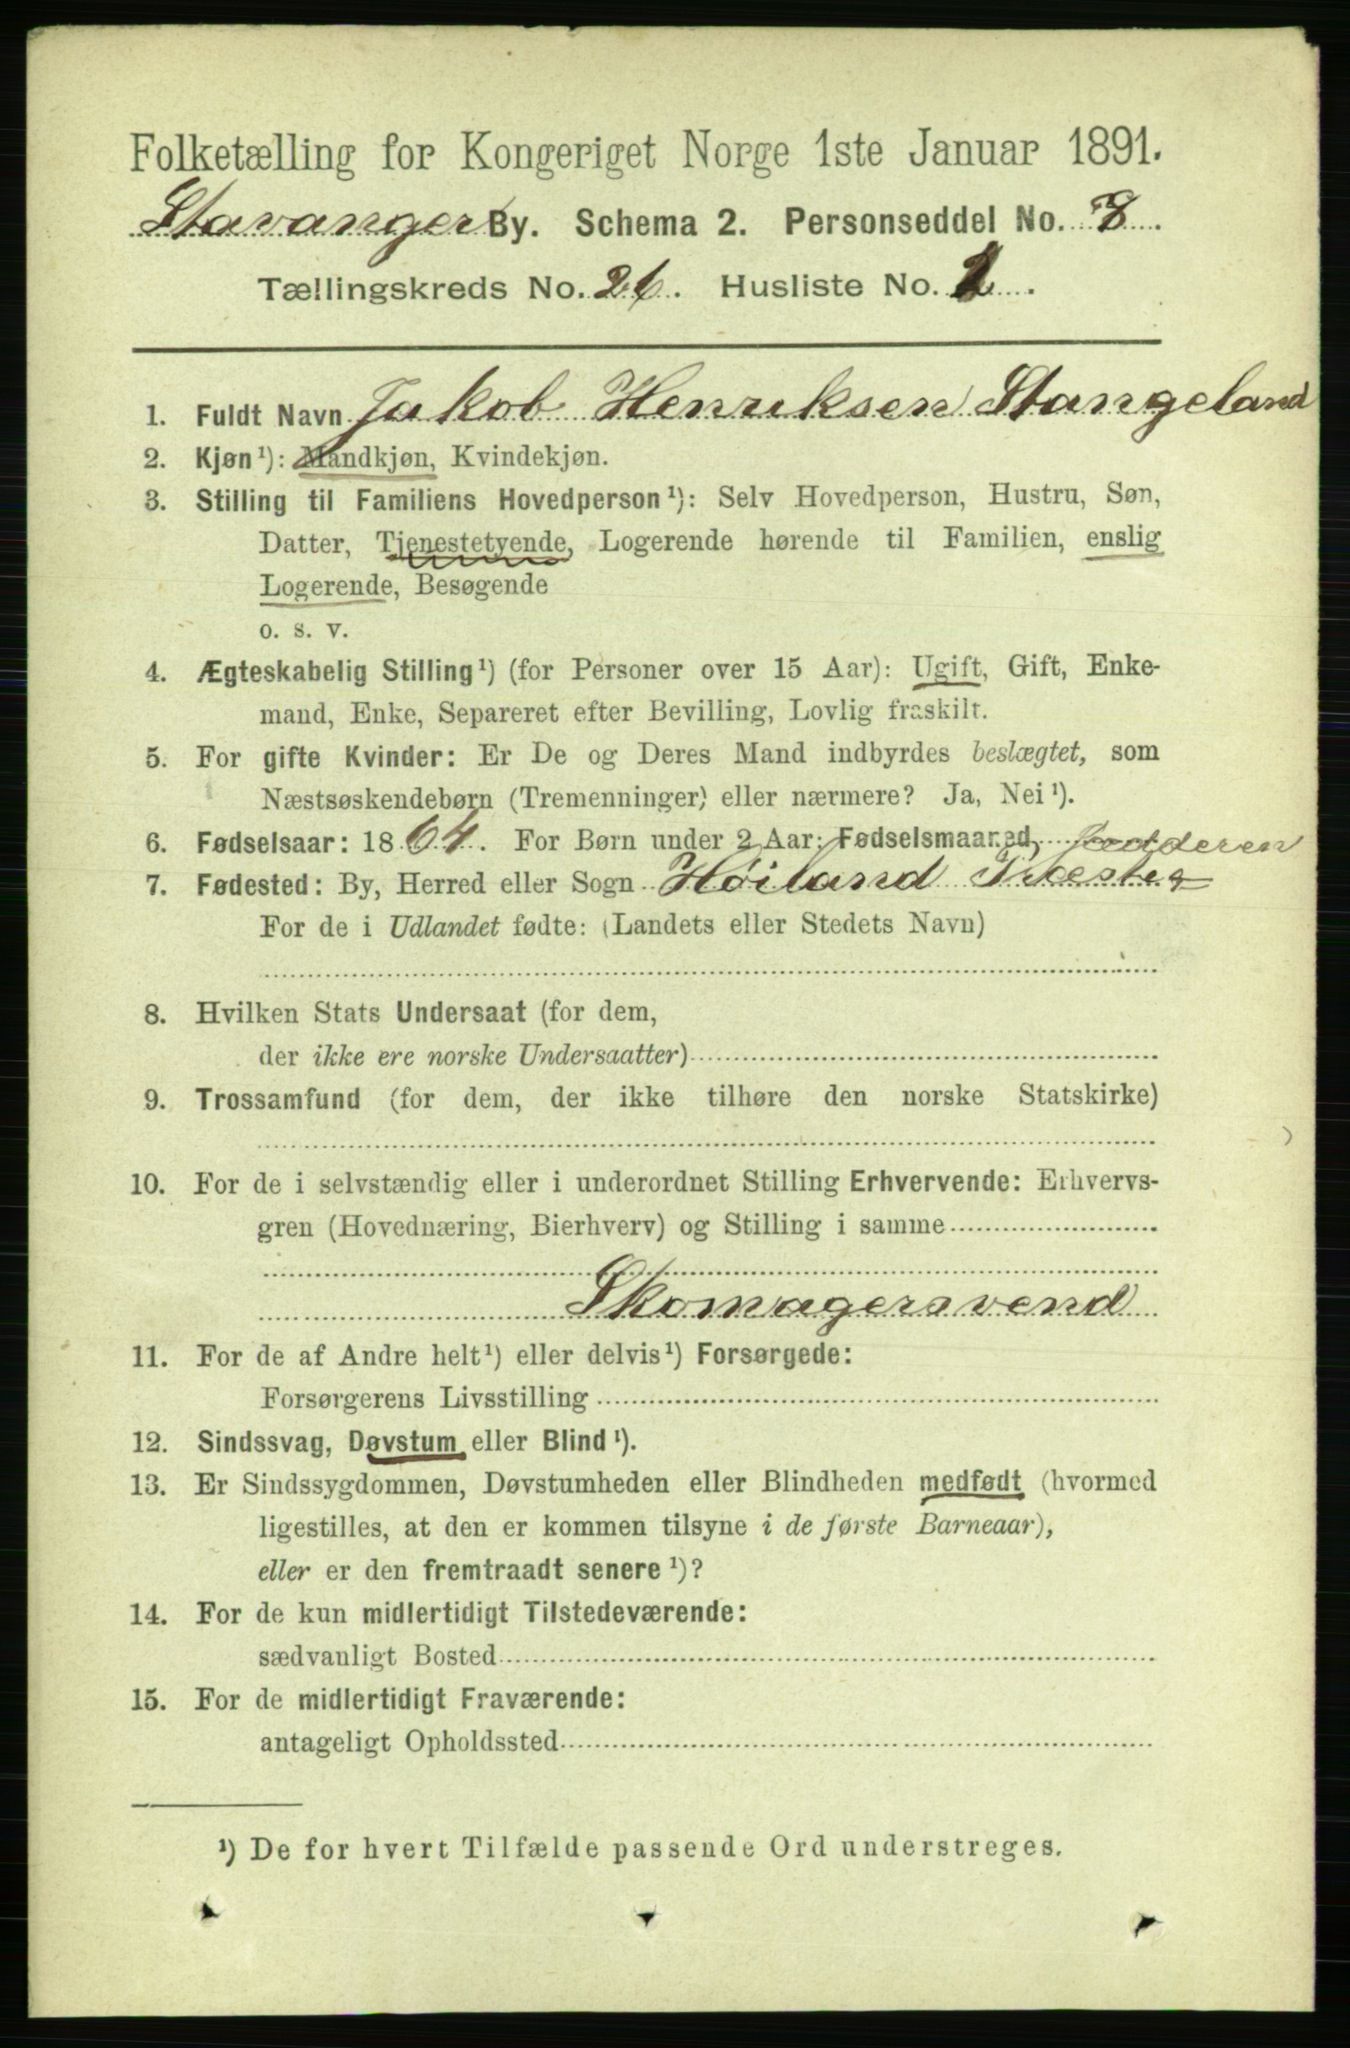 Folketælling for Kongeriget Norge 1ste Januar 1891.
Stavanger By. Schema 2. Personseddel No. 8.
Tællingskreds No. 26. Husliste No. 2.
1. Fuldt Navn Jakob Henriksen Stangeland
2. Kjøn¹): Mandkjøn, Kvindekjøn.
3. Stilling til Familiens Hovedperson¹): Selv Hovedperson, Hustru, Søn,
Datter, Tjenestetyende, Logerende hørende til Familien, enslig
Logerende, Besøgende
o. s. v.
4. Ægteskabelig Stilling¹) (for Personer over 15 Aar): Ugift, Gift, Enke-
mand, Enke, Separeret efter Bevilling, Lovlig fraskilt.
5. For gifte Kvinder: Er De og Deres Mand indbyrdes beslægtet, som
Næstsøskendebørn (Tremenninger) eller nærmere? Ja, Nei¹).
6. Fødselsaar: 1864. For Børn under 2 Aar: Fødselsmaaned, Jædderen
7. Fødested: By, Herred eller Sogn Høiland
For de i Udlandet fødte: (Landets eller Stedets Navn)
8. Hvilken Stats Undersaat (for dem,
der ikke ere norske Undersaatter)
9. Trossamfund (for dem, der ikke tilhøre den norske Statskirke)
10. For de i selvstændig eller i underordnet Stilling Erhvervende: Erhvervs-
gren (Hovednæring, Bierhverv) og Stilling i samme
Skomagersvend
11. For de af Andre helt¹) eller delvis¹) Forsørgede:
Forsørgerens Livsstilling
12. Sindssvag, Døvstum eller Blind¹).
13. Er Sindssygdommen, Døvstumheden eller Blindheden medfødt (hvormed
ligestilles, at den er kommen tilsyne i de første Barneaar),
eller er den fremtraadt senere¹)?
14. For de kun midlertidigt Tilstedeværende:
sædvanligt Bosted
15. For de midlertidigt Fraværende:
antageligt Opholdssted
¹) De for hvert Tilfælde passende Ord understreges.